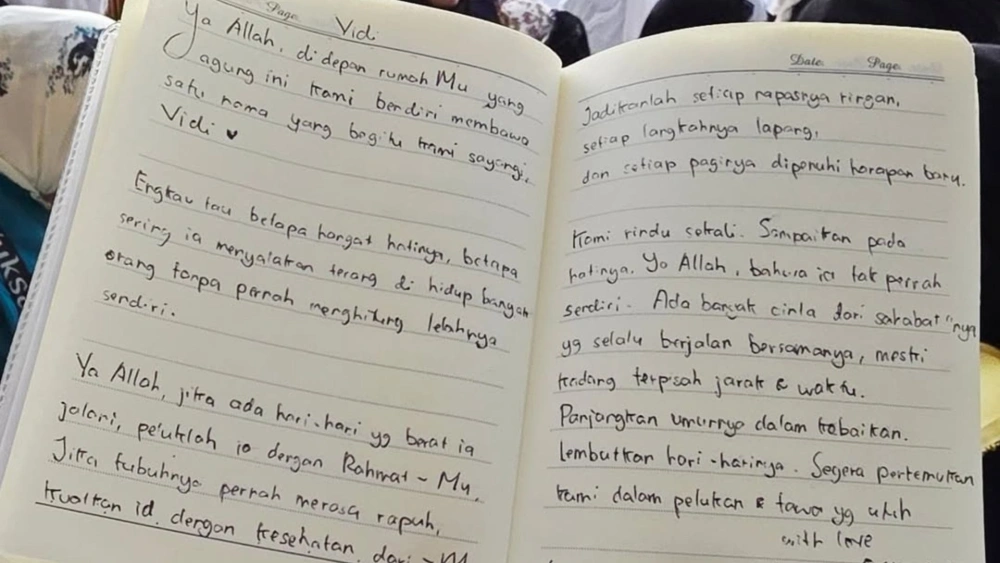 Page
Vidi
Ya Allah, di depan rumah Mu yang
agung ini kami berdiri membawa
satu nama yang begitu kami sayangi,
Vidi ♥
Engkau tau betapa hangat hatinya, betapa
sering ia menyalakan terang di hidup banyak
orang tanpa pernah menghitung lelahnya
sendiri.
Ya Allah, jika ada hari-hari yg berat ia
jalani, peluklah ia dengan Rahmat-Mu.
Jika tubuhnya pernah merasa rapuh,
kuatkan ia dengan kesehatan dari-M
Date Page
Jadikanlah setiap napasnya ringan,
setiap langkahnya lapang,
dan setiap paginya dipenuhi harapan baru.
Kami rindu sekali. Sampaikan pada
hatinya, Ya Allah, bahwa ia tak pernah
sendiri. Ada banyak cinta dari sahabat"nya
yg selalu berjalan bersamanya, meski
kadang terpisah jarak & waktu.
Panjangkan umurnya dalam kebaikan.
Lembutkan hari-harinya. Segera pertemukan
kami dalam pelukan & tawa yg utuh
with love